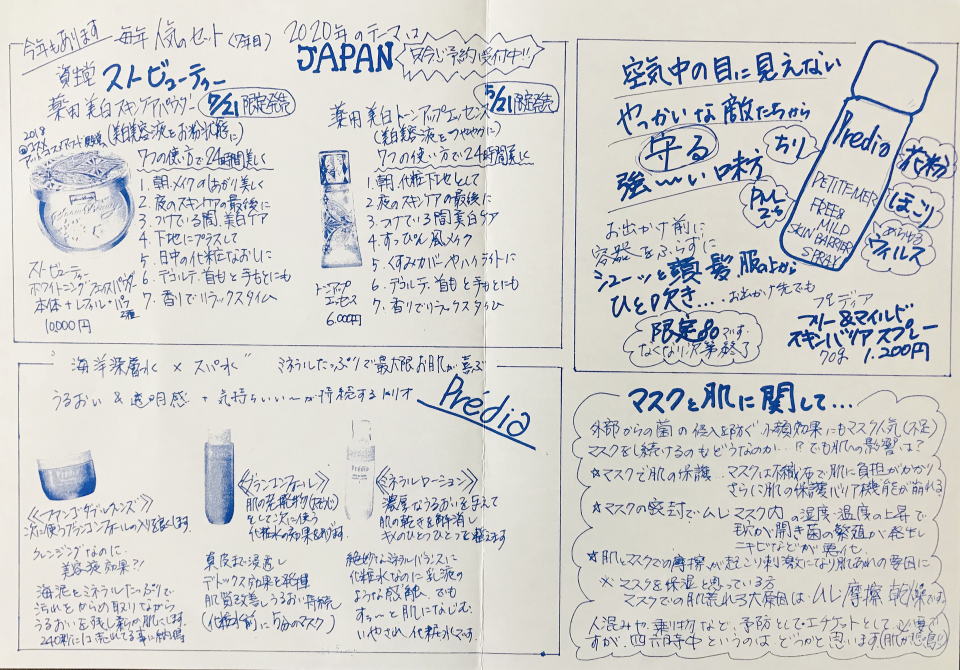 今年もあります 毎年人気のセット(7年目) 2020年のテーマは
JAPAN 只今ご予約受付中!!
資生堂 ストビューティー
薬用美白スキンケアパウダー 7/21限定発売
(粉美容液とお粉状態に)
7つの使い方で24時間美しく
1. 朝、メイクの仕上がり美しく
2. 夜のスキンケアの最後に
3. つけている間、美白ケア
4. 下地にプラスして
5. 日中の化粧なおしに
6. デコルテ、首も と手もとにも
7. 香りでリラックスタイム
ストビューティー
ホワイトニングフェイスパウダー
本体+レフィル+パフ2種
10,000円
薬用美白トーンアップエッセンス 5/21限定発売
7つの使い方で24時間美に
1. 朝、化粧下地として
2. 夜のスキンケアの最後に
3. つけている間美白ケア
4. すっぴん風メイク
5. くすみカバーやハイライトに
6. デコルテ、首もと手もとにも
7. 香りでリラックスタイム
トーンアップ
エッセンス
6,000円
空気中の目に見えない
やっかいな敵たちから
守る
強〜い味方
ちり
PM2.5
花粉
ほこり
あらゆる
ウィルス
Predia
PETITE MER
FREE &
MILD
SKIN BARRIER
SPRAY
お出かけ前に
容器をふらずに
シューッと頭、髪、服の上から
ひと吹き.... お出かけ先でも
限定80です。
なくなり次第終了
プレディア
フリー&マイルド
スキンバリアスプレー
70g 1,200円
海洋深層水 × スパ水
ミネラルたっぷりで最大限お肌が喜ぶ
うるおい & 透明感 + 気持ちいい〜が持続するトリオ
Prédia
《ファンゴ・サデルクレンズ》
次に使うブランコンフォールの入りを良くします。
クレンジングなのに、
美容液効果?!
海泥とミネラルたっぷりで
汚れをからめ取りながら
うるおいを残し素が肌にします。
《ブランコンフォール》
化粧水の効果をあげます。
真皮まで浸透し
デトックス効果を発揮
肌質改善しうるおい持続
(化粧水前に5分のマスク)
《ミネラルローション》
濃厚なうるおいを与えて
肌の乾きを解消し
キメのひとつひとつを整えます
絶妙なミネラルバランスに
化粧水なのに乳液の
ような感触、でも
すぅーっと肌になじむ。
いやされ化粧水です。
マスクと肌に関して...
外部からの菌の侵入を防ぐ小顔効果にもマスク人気(不足)
マスクをし続けるのもどうなのか...!?でも肌への影響は?
☆マスクで肌の保護...マスクは不織布で肌に負担がかかり
さらに肌の保護バリア機能が崩れる
☆マスクの密封でムレ マスク内の湿度・温度の上昇で
毛穴が開き菌の繁殖が発生し
ニキビなどが悪化。
☆肌とマスクでの摩擦が起こり刺激になり肌あれの要因に
※マスクを保湿と思っている方
マスクでの肌荒れる大原因は、ムレ、摩擦、乾燥です。
人混みや、乗り物など、予防として・エチケットとして必要で
すが、四六時中というのは、どうかと思います。